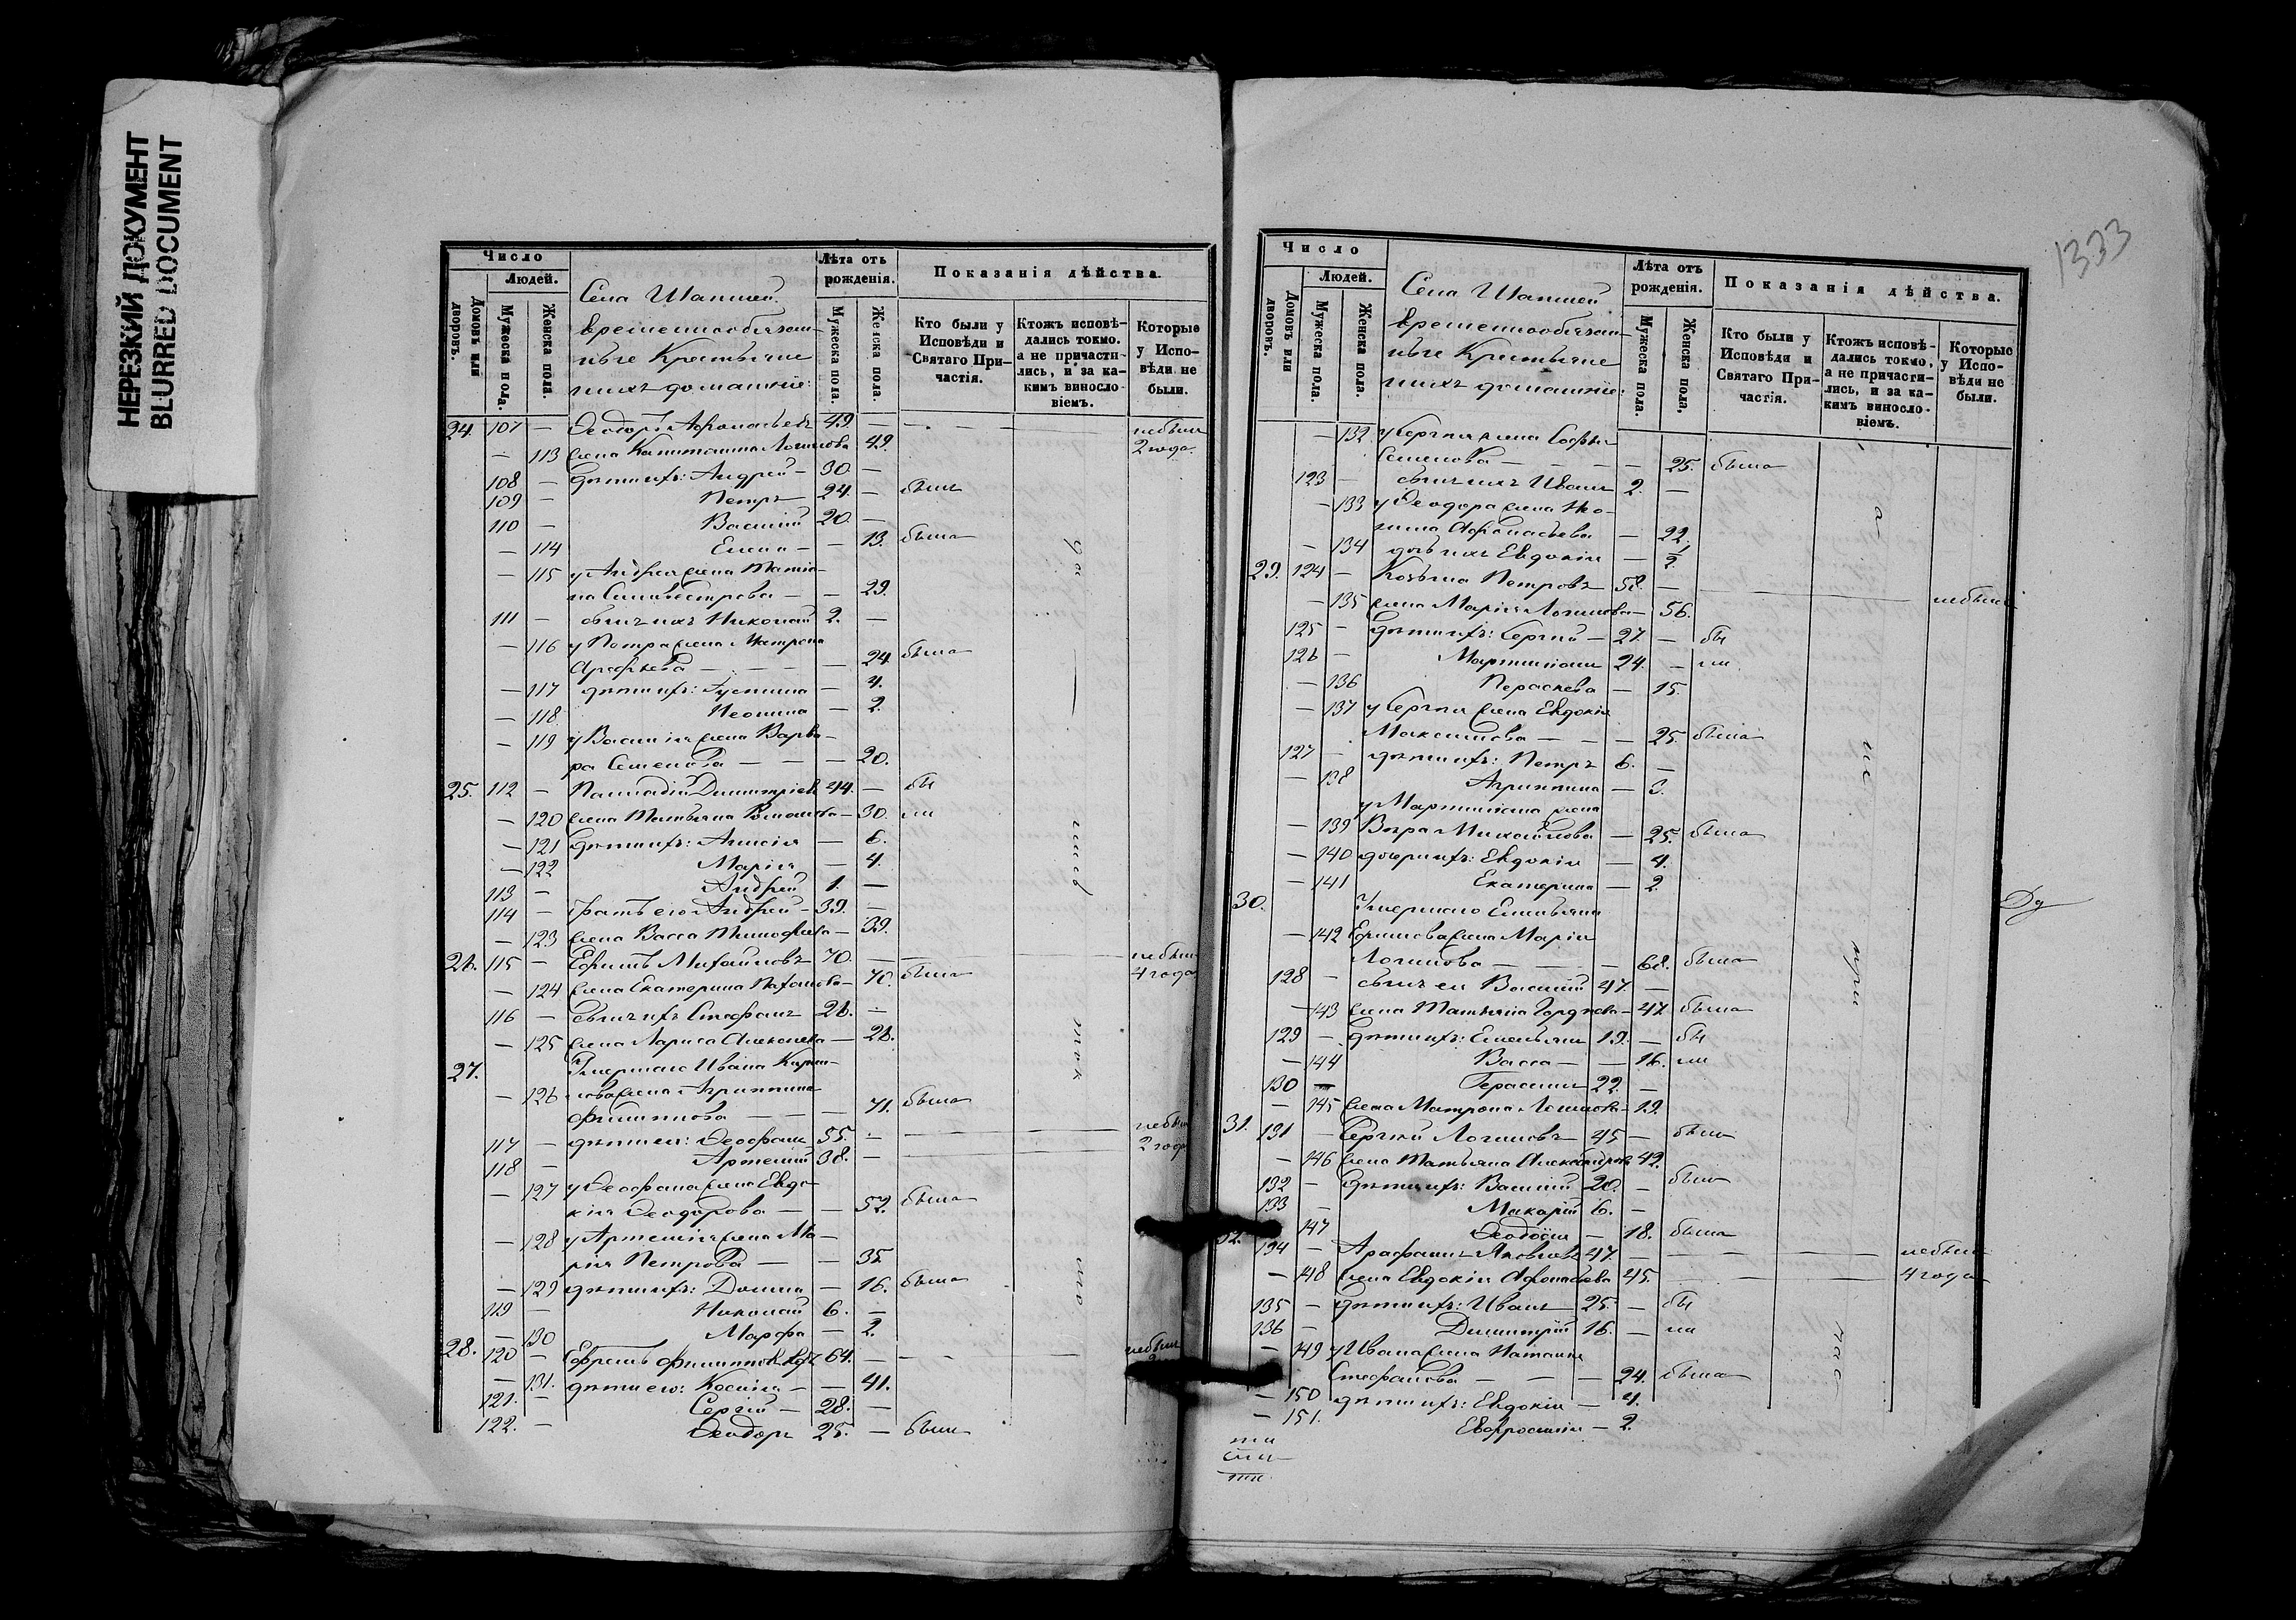 НЕРЕЗКИЙ ДОКУМЕНТ
BLURRED DOCUMENT
Число
Людей.
Домовъ или дворовъ.
Мужеска пола.
Женска пола.
Села Шапшей
временнообязан-
ные Крестьяне
ихъ домашніе:
Лѣта отъ рожденія.
Мужеска пола.
Женска пола.
Показанія дѣйства.
Кто были у Исповѣди и Святаго Причастія.
Ктожъ исповѣдались токмо, а не причастились, и за какимъ винословіемъ.
Которые у Исповѣди не были.
24. 107 — Ѳеодоръ Афонасьевъ 49. — небыли
— 113 жена Капитолина Логинова 49. 2 года
108 — дѣти ихъ: Андрей — 30. —
109 — Петръ 24. — были
110 — Василій 20. —
— 114 Елена — — 13. была
— 115 у Андрея жена Татія-
на Сильвестрова — — 29.
111 — сынъ ихъ Николай 2. —
— 116 у Петра жена Матрона
Арефьева — — — 24. была
— 117 дѣти ихъ: Іустина — 4.
— 118 Неонила — 2.
— 119 у Василія жена Варва-
ра Семенова — — — 20.
25. 112 — Палладій Димитріевъ 44. — бы
— 120 жена Татьяна Романова — 30. ли
— 121 дѣти ихъ: Анисія — 6.
— 122 Марія — 4.
113 — Андрей 1. —
114 — братъ его Андрей — 39. —
— 123 жена Васса Тимофѣева — 39.
26. 115 — Ефимъ Михайловъ 70. — небылъ
— 124 жена Екатерина — 70. была 4 года
116 — сынъ ихъ Стефанъ 26. —
— 125 жена Лариса Алексѣева — 26.
27. Умершаго Ивана Кирил-
— 126 лова жена Агрипина
Филиппова — — — 71. была
117 — дѣти ея: Ѳеофанъ 55. — небыли
118 — Артемій 38. — 2 года
— 127 у Ѳеофана жена Евдо-
кія Ѳеодорова — — 52. была
— 128 у Артемія жена Ма-
рія Петрова — — 35.
— 129 дѣти ихъ: Домна — 16. была
119 — Николай 6. —
— 130 Марфа — 2.
28. 120 — Ефремъ Филипповъ вд 64. — небылъ
— 131. дѣти его: Ксенія — — 41.
121. — Сергій — 28. —
122. — Ѳеодоръ 25. — были
1333
Число
Людей.
Домовъ или дворовъ.
Мужеска пола.
Женска пола.
Села Шапшей
временнообязан-
ные Крестьяне
ихъ домашніе:
Лѣта отъ рожденія.
Мужеска пола.
Женска пола,
Показанія дѣйства.
Кто были у Исповѣди и Святаго Причастія.
Ктожъ исповѣдались токмо, а не причастились, и за какимъ винословіемъ.
Которые у Исповѣди не были.
— 132 у Сергія жена Софья
Семенова — — — — 25. была
123 — сынъ ихъ Иванъ 2. —
— 133 у Ѳеодора жена Нео-
нила Афонасьева — 22.
— 134 дочь ихъ Евдокія — 1/2
29. 124 — Козьма Петровъ 58. — небылъ
— 135 жена Марія Логинова — 56.
125 — дѣти ихъ: Сергій — 27. — бы
126 — Мартиніанъ 24. — ли
— 136 Параскева — 15.
— 137 у Сергія жена Евдокія
Максимова — — — 25. была
127 — дѣти ихъ: Петръ 6. —
— 138 Агрипина — 3.
у Мартиніана жена
— 139 Вѣра Михайлова — 25. была
— 140 дочери ихъ: Евдокія — 4.
— 141 Екатерина — 2.
30. Умершаго Емельяна
— 142 Ефимова жена Марія
Логинова — — — 68. была
128 — сынъ ея Василій 47. —
— 143 жена Татьяна Гордѣева — 47. была
129 — дѣти ихъ: Емельянъ 19. — бы
— 144 Васса — — 16. ли
130 — Герасимъ 22. —
— 145 жена Матрона — 19.
31. 131 — Сергій Логиновъ 45 — былъ
— 146 жена Татьяна Александрова 42.
132 — дѣти ихъ: Василій 20. — былъ
133 — Макарій 6. —
147 Ѳеодосія — 18. была
32. 134 — Яковлевъ 47. — небыли
— 148 жена Евдокія Афонасьева 45. 4 года
135 — дѣти ихъ: Иванъ 25. — бы
136 — Димитрій 16. — ли
— 149 у Ивана жена Наталья
Стефанова — — — 24. была
— 150 дѣти ихъ: Евдокія — 4.
— 151. Евфросинія — 2.